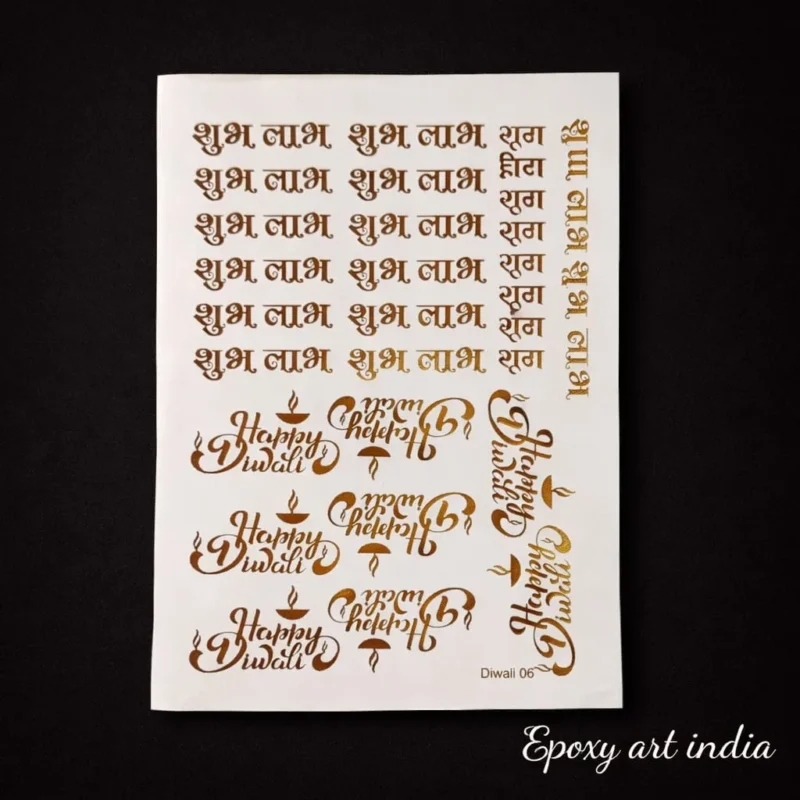 शुभ लाभ शुभ लाभ
शुभ लाभ शुभ लाभ
शुभ लाभ शुभ लाभ
शुभ लाभ शुभ लाभ
शुभ लाभ शुभ लाभ
शुभ लाभ शुभ लाभ
लाभ शुभ लाभ
Happy
Diwali
Happy
Diwali
Happy
Diwali
Happy
Diwali
Happy
Diwali
Happy
Diwali
Happy
Diwali
Happy
Diwali
Diwali 06
Epoxy art india